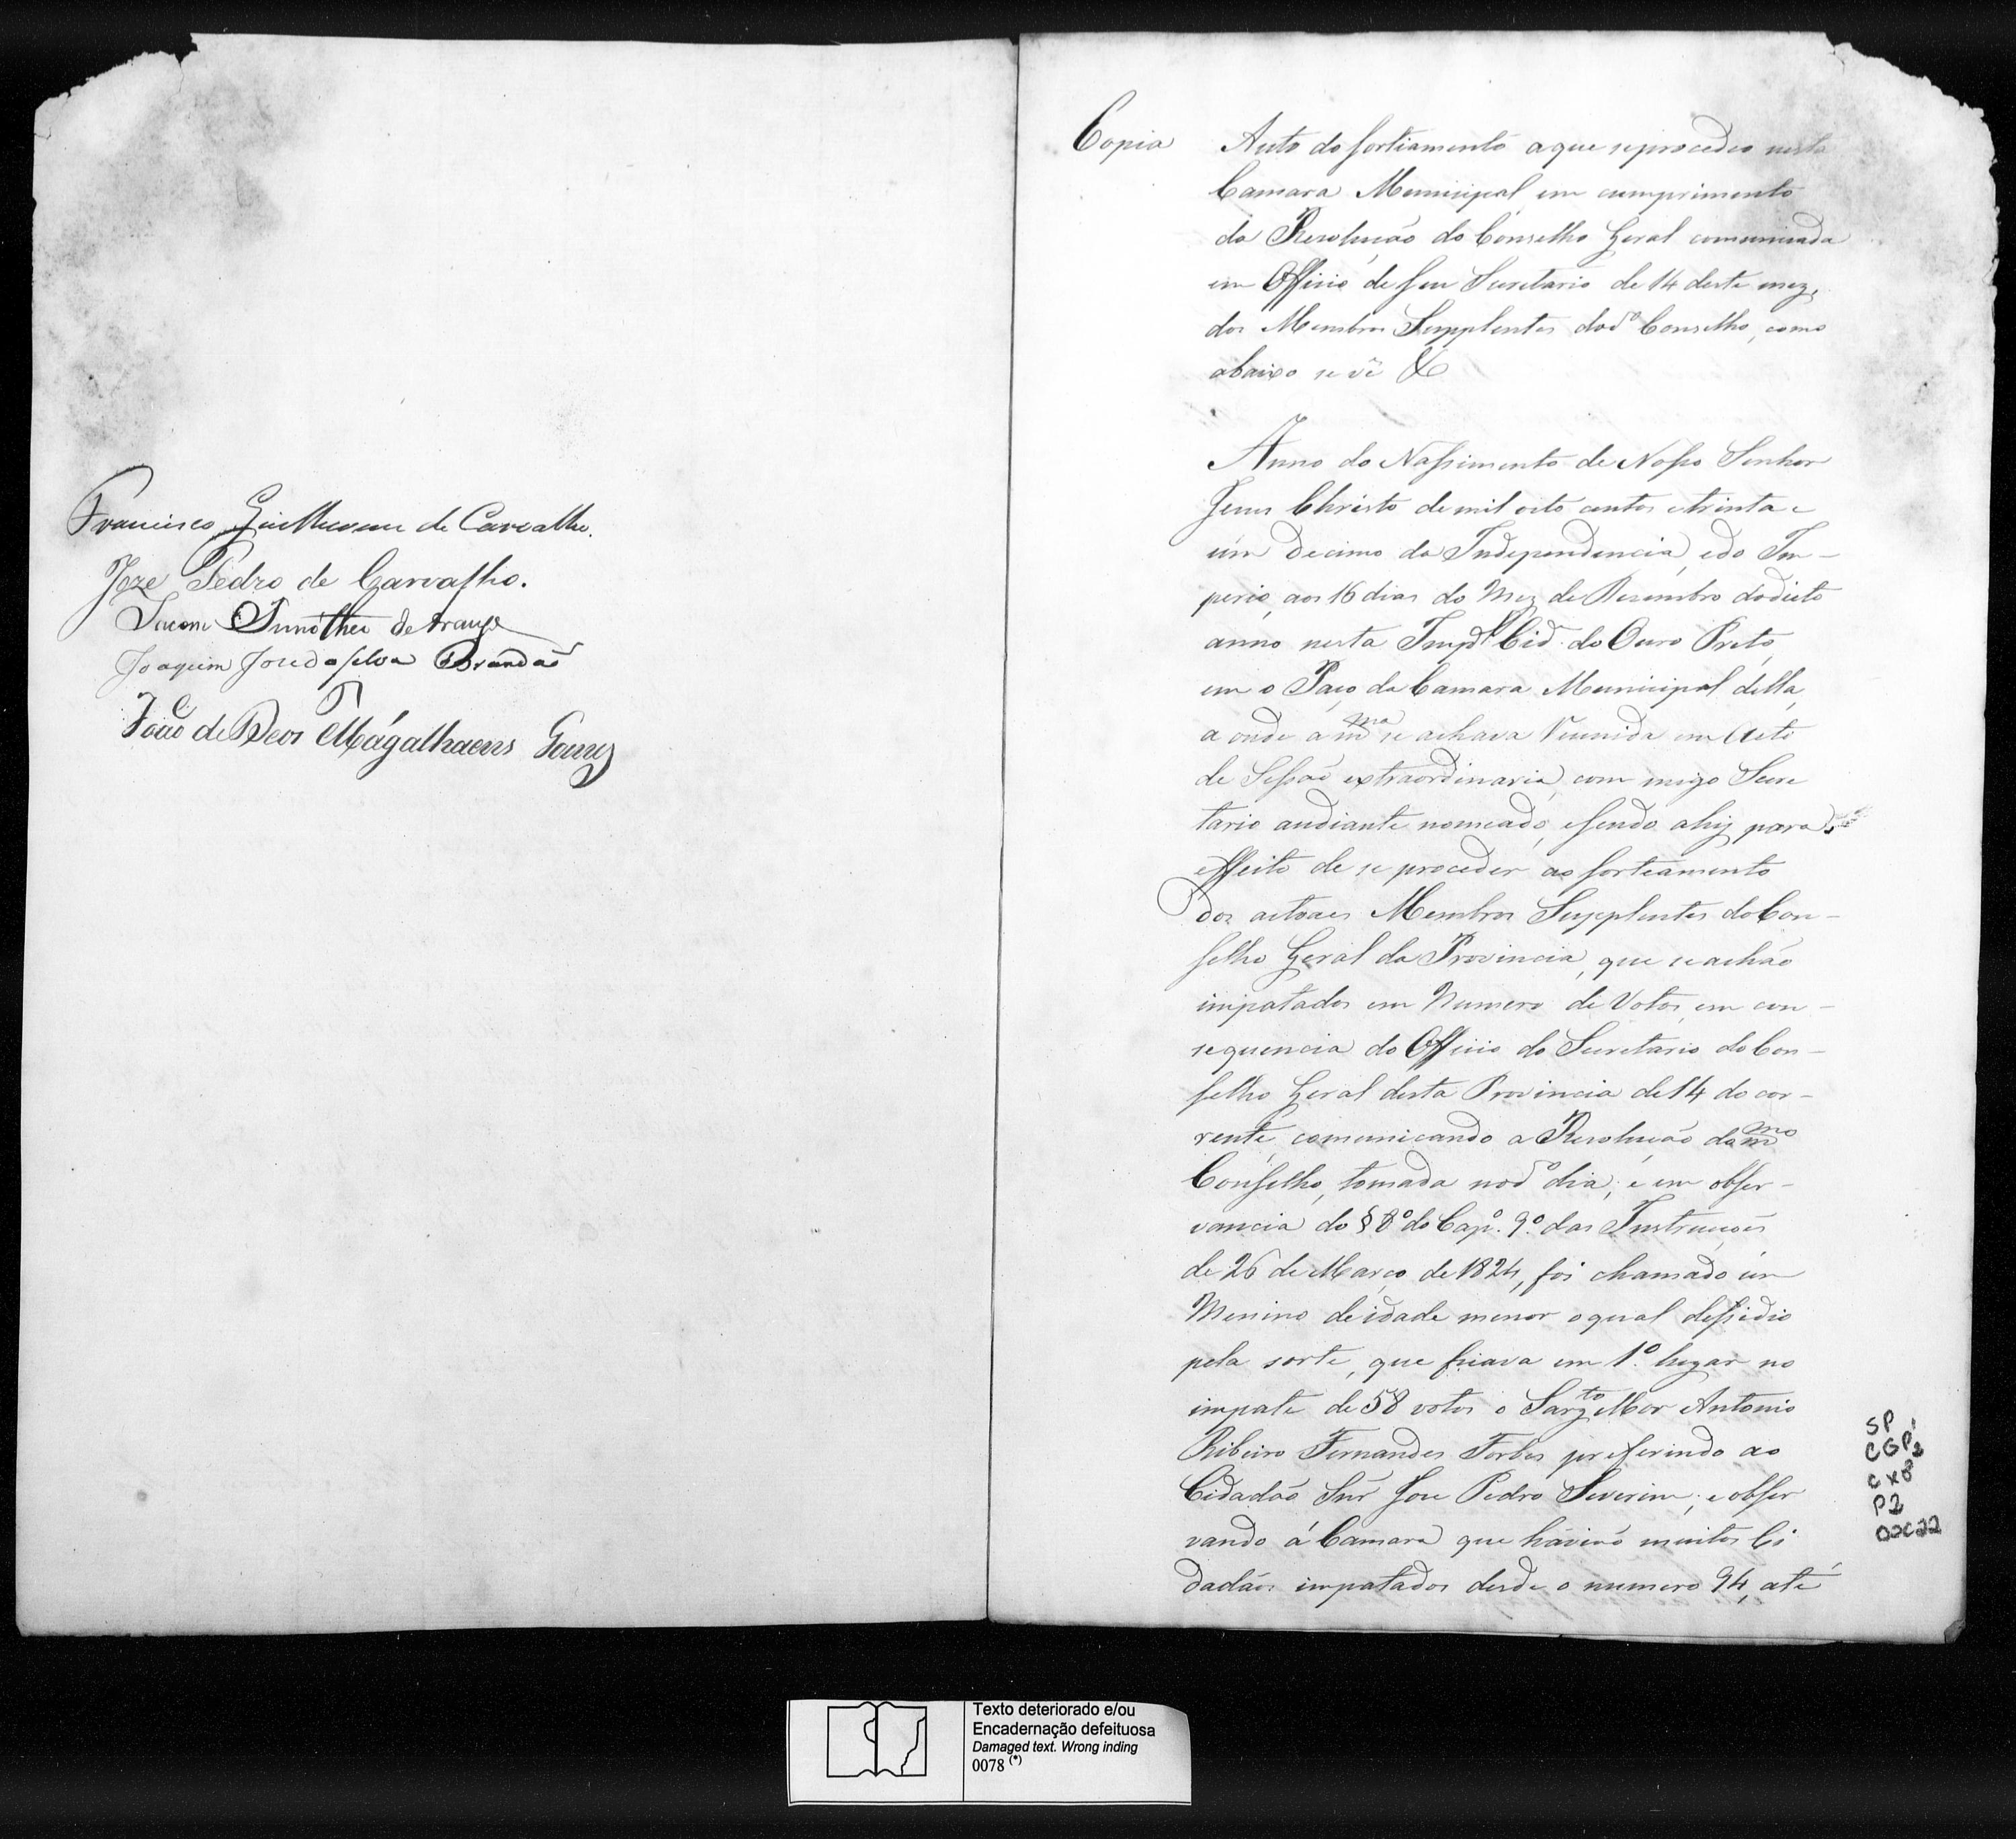 Francisco Guilherme de Carvalho.
Joze Pedro de Carvalho.
Timotheo de Araujo
Joaquim Jose da Silva Brandaõ
Joaõ de Deos Magalhaens Gomes
Copia
Auto do sortiamento a que se procedeo nesta
Camara Municipal em cumprimento
da Resolução do Conselho Geral comunicada
em Officio de seu Secretario de 14 deste mez,
dos Membros Supplentes do dº Conselho, como
abaixo se vê &
Anno do Nassimento de Nosso Senhor
Jesus Christo de mil oito centos e trinta e
úm Decimo da Independencia, e do Im-
perio, aos 16 dias do Mez de Dezembro do dicto
anno nesta Impal Cide do Ouro Preto,
em o Paço da Camara Municipal della,
a onde a mma se achava Reunida em Acto
de Sessaõ extraordinaria, com migo Secre
tario andiante nomeado, e sendo ahy para
effeito de se proceder ao sorteamento
dos actoaes Membros Supplentes do Con-
selho Geral da Provincia, que se achão
impatados em Numero de Votos, em con-
sequencia do Officio do Secretario do Con-
selho Geral desta Provincia de 14 do cor-
rente, comunicando a Resolução do mmo
Conselho, tomada no dº dia; e em obser-
vancia do § 8º do Capº. 9º das Instrucçoẽs
de 26 de Março de 1824, foi chamado úm
Menino de idade menor o qual dessidio
pela sorte, que ficava em 1º lugar no
impate de 58 votos o Sargto Mor Antonio
Ribeiro Fernandes Forbes preferindo ao
Cidadão Snr Jose Pedro Severim; e obser
vando á Camara que haviaõ muitos Ci
dadãos impatados desde o numero 94, até
SP
CGP1
CX8
P2
DOC22
Texto deteriorado e/ou
Encadernação defeituosa
Damaged text. Wrong inding
0078 (*)